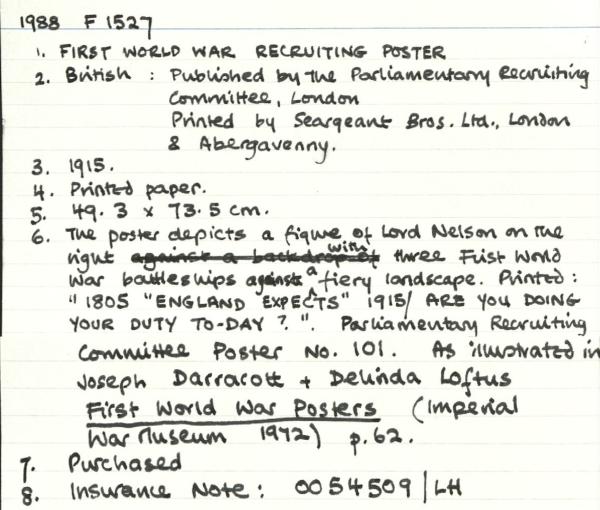 1988 F 1527
1. FIRST WORLD WAR RECRUITING POSTER
2. British : Published by the Parliamentary Recruiting
Committee, London
Printed by Seargeant Bros. Ltd., London
& Abergavenny.
3. 1915.
4. Printed paper.
5. 49.3 x 73.5 cm.
6. The poster depicts a figure of Lord Nelson on the
right against a backdrop of with three First World
War battleships against a fiery landscape. Printed :
" 1805 "ENGLAND EXPECTS" 1915/ ARE YOU DOING
YOUR DUTY TO-DAY ? ". Parliamentary Recruiting
Committee Poster No. 101. As illustrated in
Joseph Darracott + Belinda Loftus
First World War Posters (Imperial
War Museum 1972) p.62.
7. Purchased
8. Insurance Note : 0054509/LH